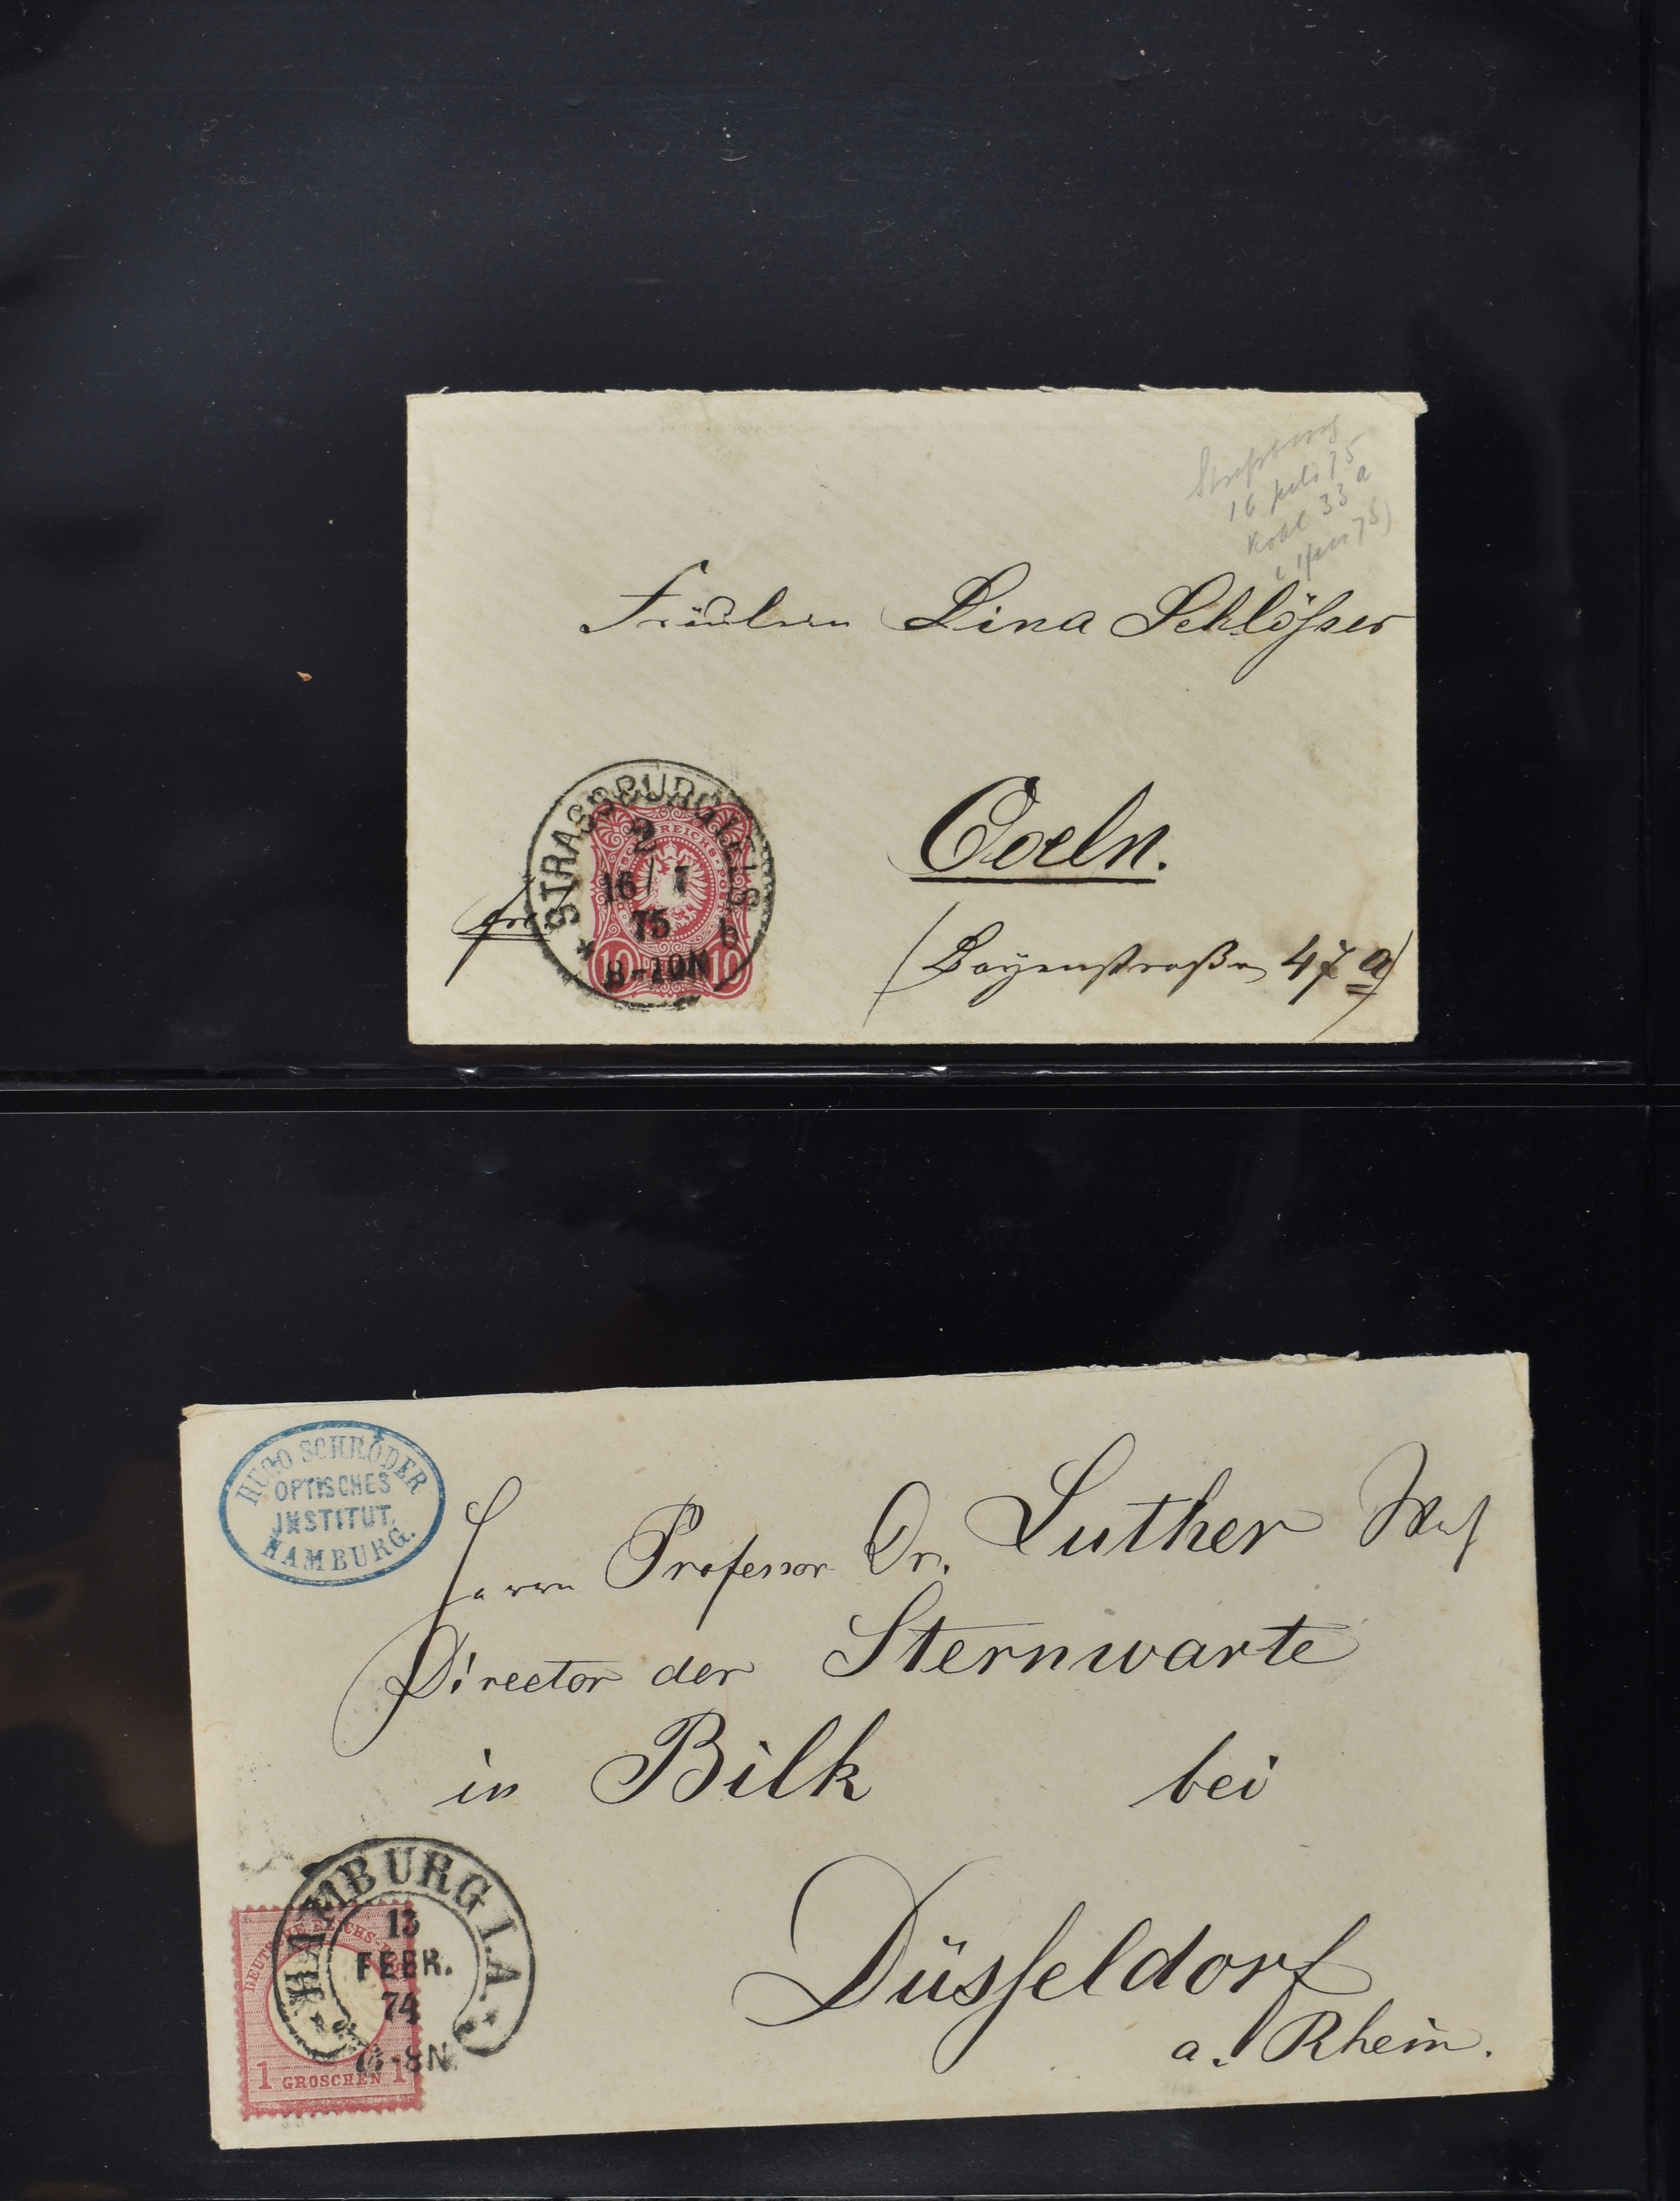 16 Juli 75
33 a
Fräulein Lina Schlösser
STRASSBURG I. ELS
2
16/7
75
8-10N
b
REICHS-POST
10 10
Coeln.
(Bayenstraße 47a)
HUGO SCHRÖDER
OPTISCHES
INSTITUT
HAMBURG.
Herrn Professor Dr. Luther
Director der Sternwarte
in Bilk bei
Düsseldorf
a. Rhein.
HAMBURG I.A.
13
FEBR.
74
-8N.
DEUTSCHE REICHS-POST
1 GROSCHEN 1